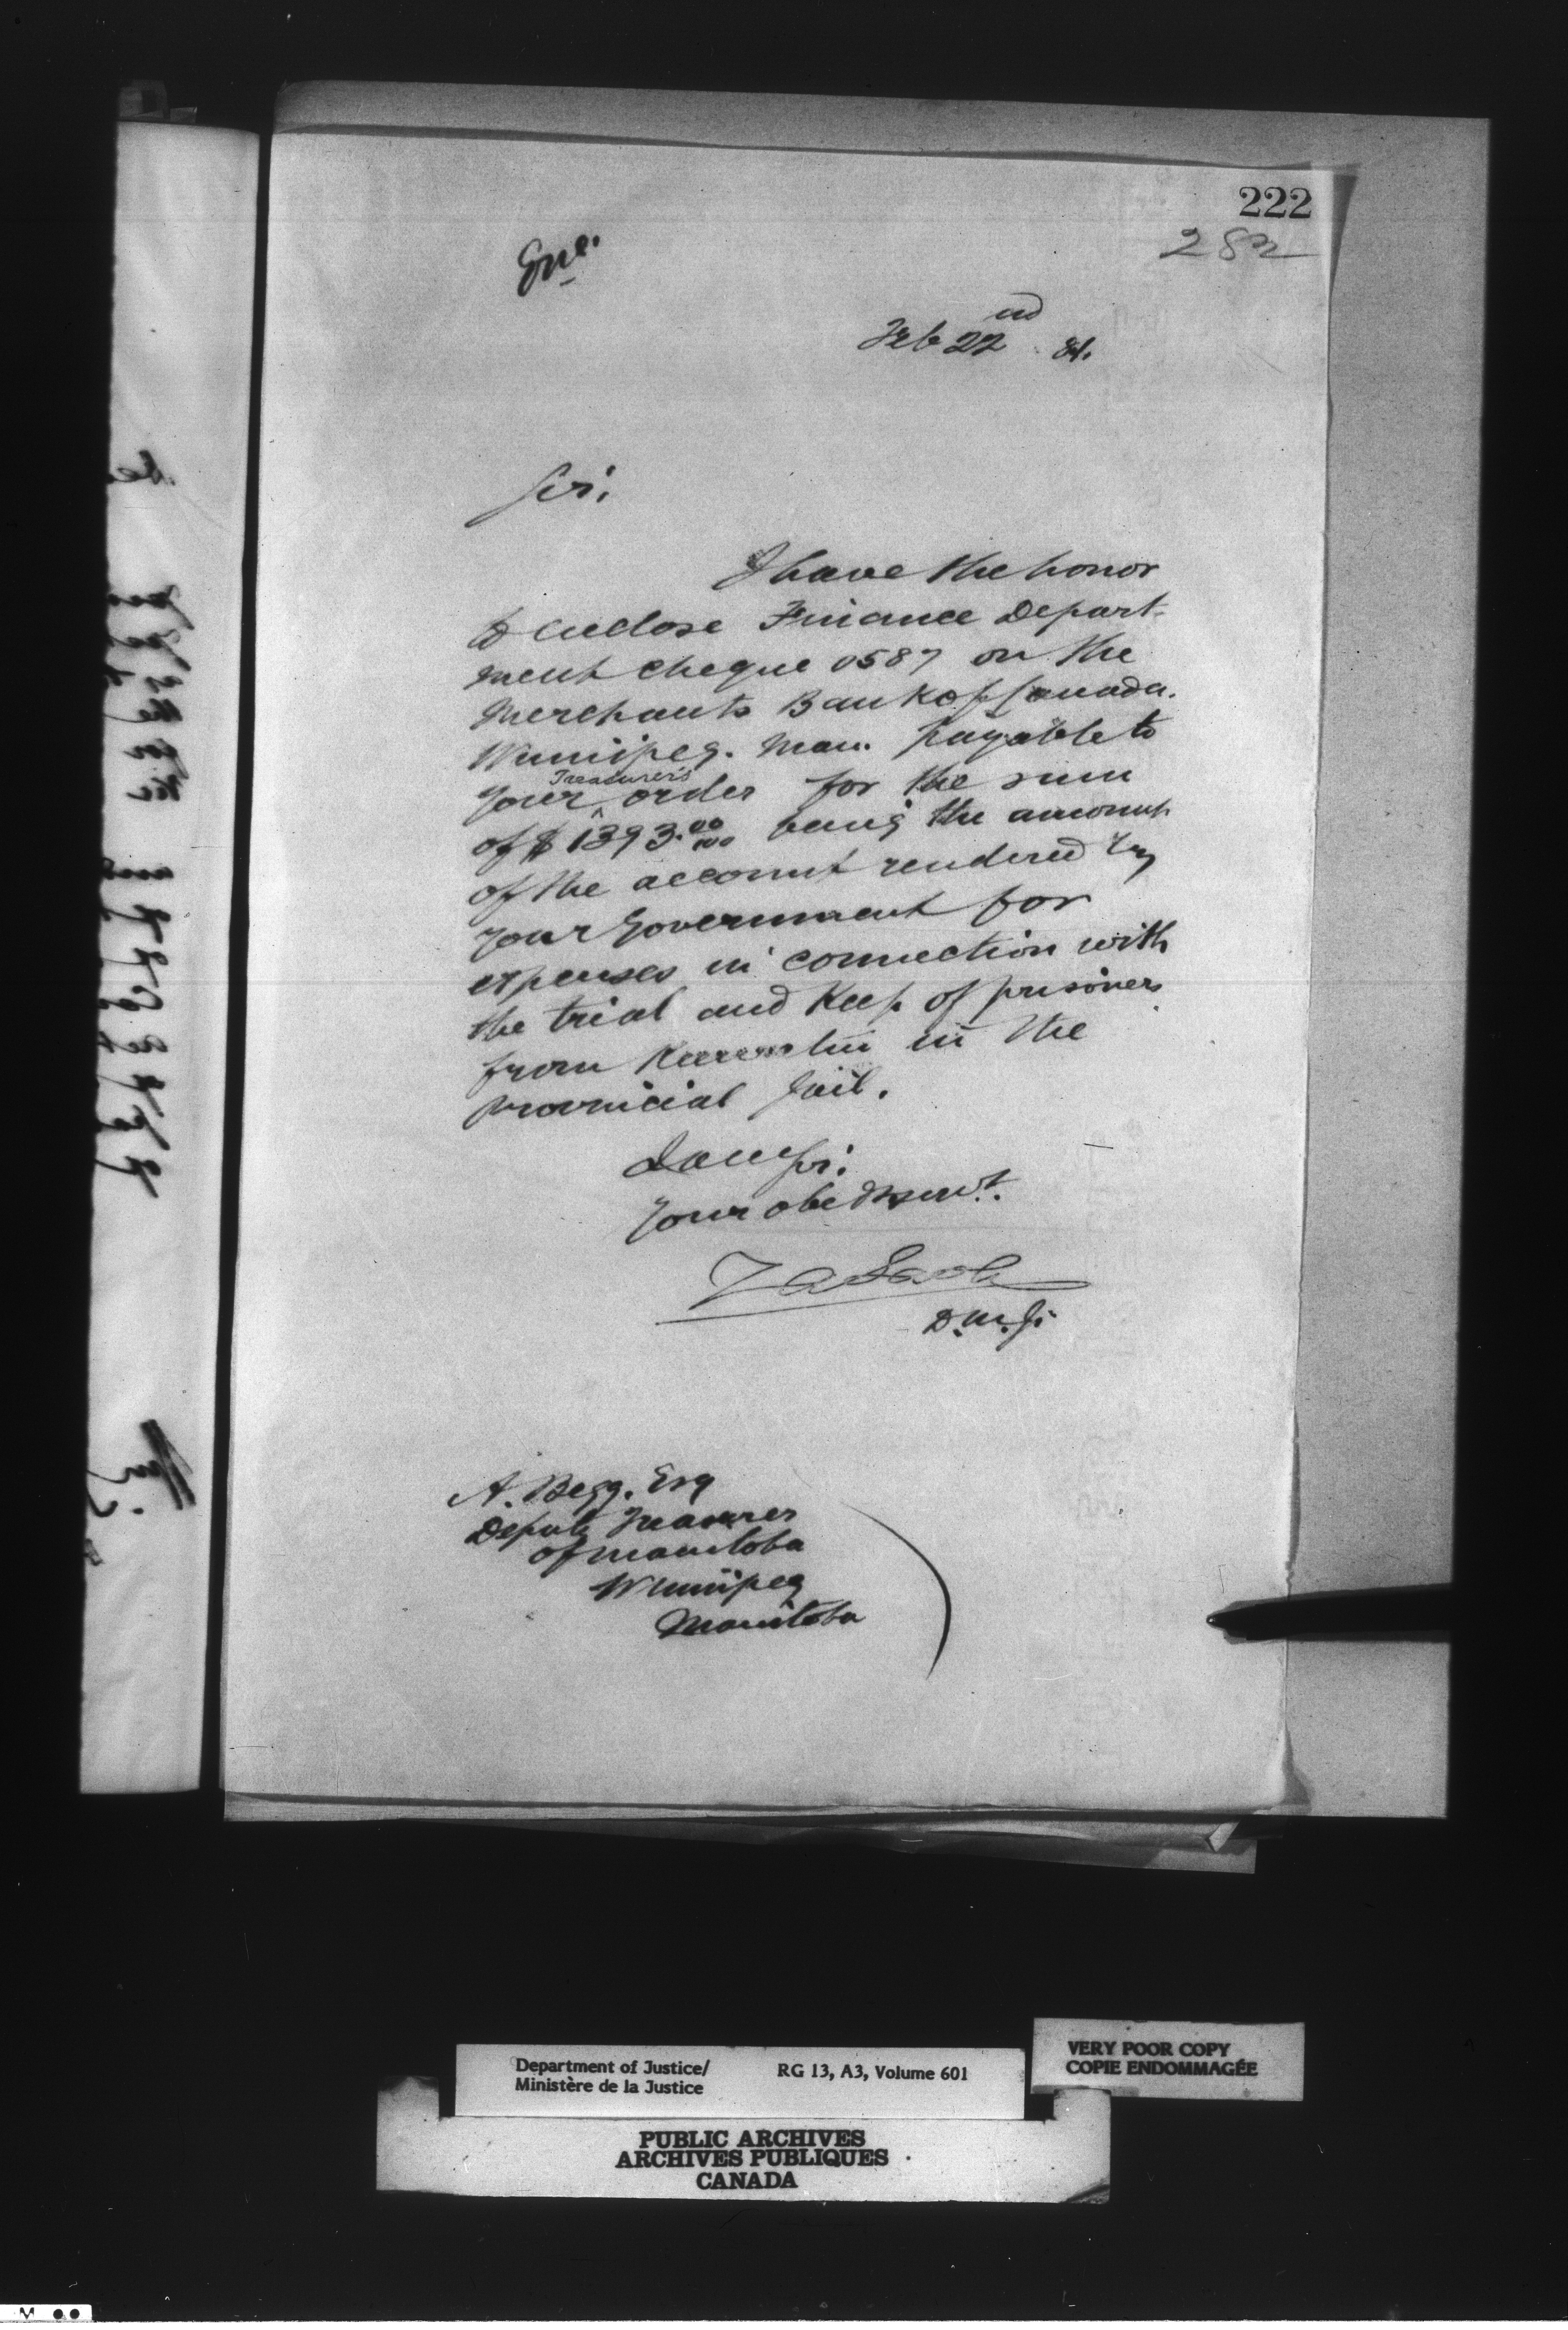 222
282
Enc.
Feb 22nd 81.
Sir.
I have the honor
to enclose Finance Depart-
ment cheque 0587 on the
Merchants Bank of Canada.
Winnipeg. Man. payable to
your Treasurer's order for the sum
of $1393.00/100 being the amount
of the account rendered by
your Government for
expenses in connection with
the trial and Keep of prisoners
from Keewatin in the
provincial Jail.
I am Sir.
Your obedt servt.
D.M.J.
A. Begg. Esq
Deputy Treasurer
of Manitoba
Winnipeg
Manitoba
Department of Justice/
Ministère de la Justice
RG 13, A3, Volume 601
VERY POOR COPY
COPIE ENDOMMAGÉE
PUBLIC ARCHIVES
ARCHIVES PUBLIQUES
CANADA